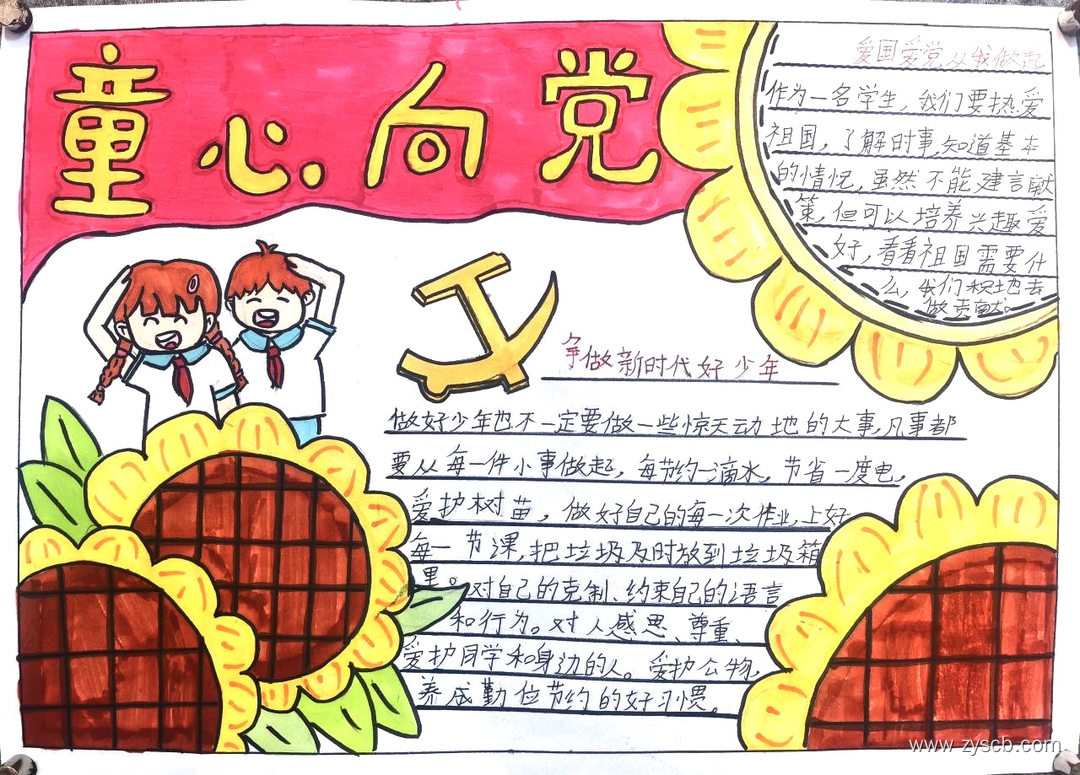 童心向党
爱国爱党从我做起
作为一名学生，我们要热爱
祖国，了解时事，知道基本
的情况，虽然不能建言献
策，但可以培养兴趣爱
好，看看祖国需要什
么，我们积地去
做贡献。
争做新时代好少年
做好少年也不一定要做一些惊天动地的大事，凡事都
要从每一件小事做起，每节约一滴水，节省一度电，
爱护树苗，做好自己的每一次作业，上好
每一节课，把垃圾及时放到垃圾箱
里。对自己的克制、约束自己的语言
和行为。对人感恩、尊重、
爱护同学和身边的人。爱护公物，
养成勤位节约的好习惯。
www.zyscb.com